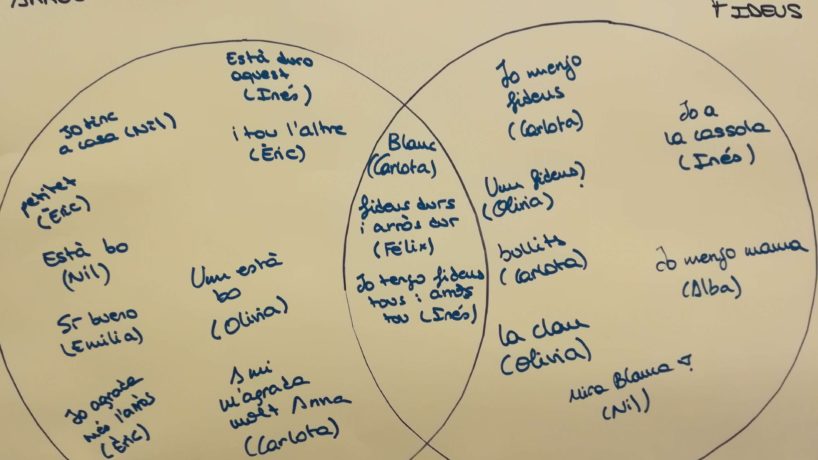 FIDEUS
Està duro
aquest
(Inés)
Jo tinc
a casa (Nil)
i tou l'altre
(Èric)
petitet
(Èric)
Està bo
(Nil)
Umm està
bo
(Olivia)
Sí bueno
(Emilia)
Jo agrada
més l'arròs
(Èric)
A mi
m'agrada
molt Anna
(Carlota)
Blanc
(Carlota)
fideus durs
i arròs dur
(Félix)
Jo tengo fideus
tous i arròs
tou (Inés)
Jo menjo
fideus
(Carlota)
Jo a
la cassola
(Inés)
Umm fideus?
(Olivia)
bollits
(Carlota)
Jo menjo mama
(Alba)
la clau
(Olivia)
mira Blanca
(Nil)